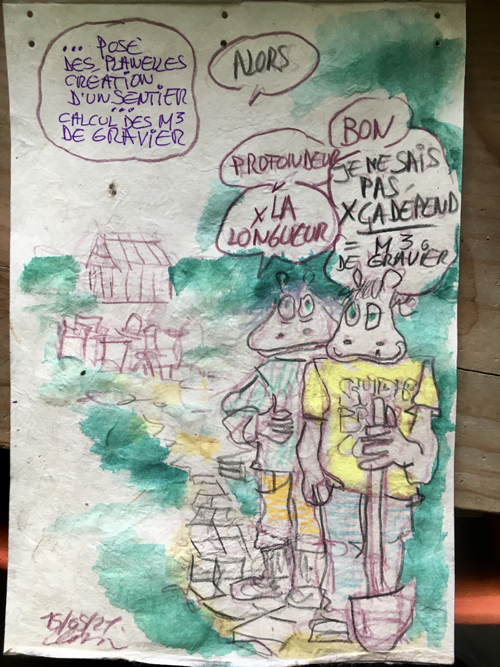 ... POSÉ
DES PLANELLES
CREATION
D'UN SENTIER
...
CALCUL DES M3
DE GRAVIER
ALORS
PROFONDEUR
x LA
LONGUEUR
BON
JE NE SAIS
PAS
X ÇA DÉPEND
= M3
DE GRAVIER
15/05/21